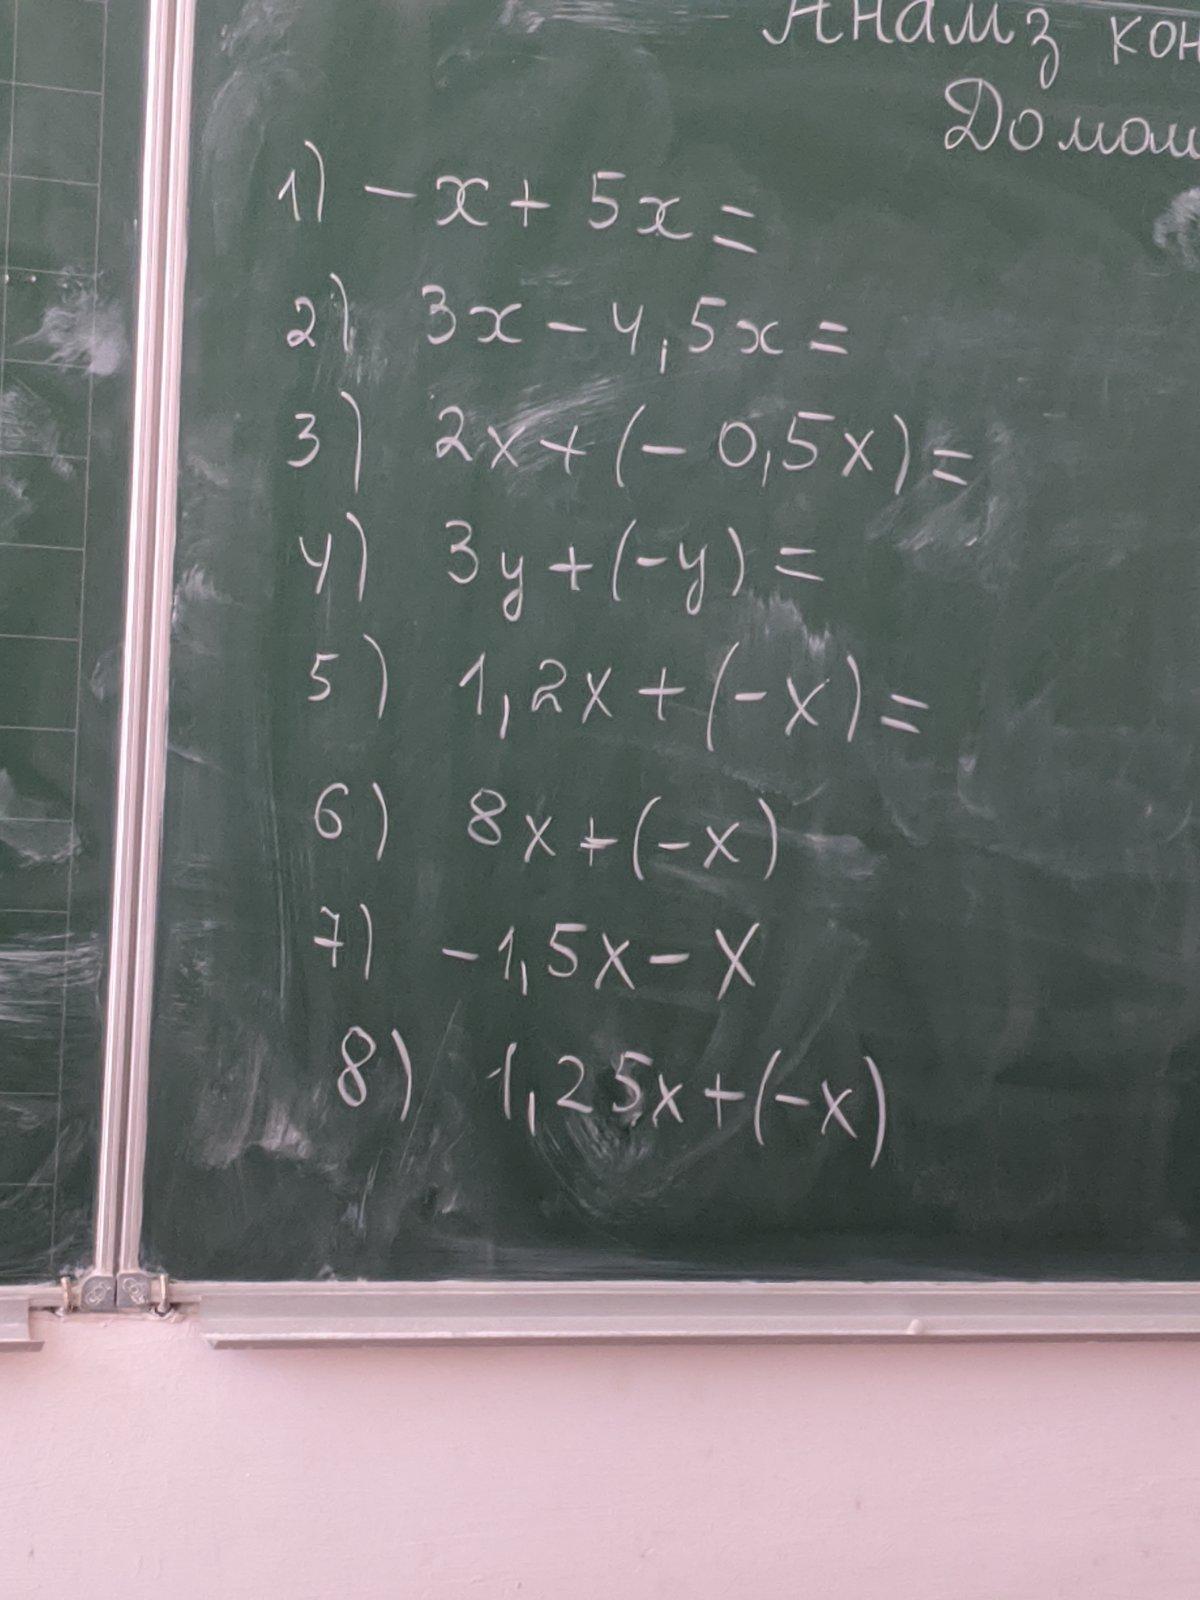 Анамз
1) -x + 5x =
2) 3x - 4,5x =
3) 2x + (- 0,5x) =
4) 3y + (-y) =
5) 1,2x + (-x) =
6) 8x + (-x)
7) -1,5x - x
8) 1,25x + (-x)